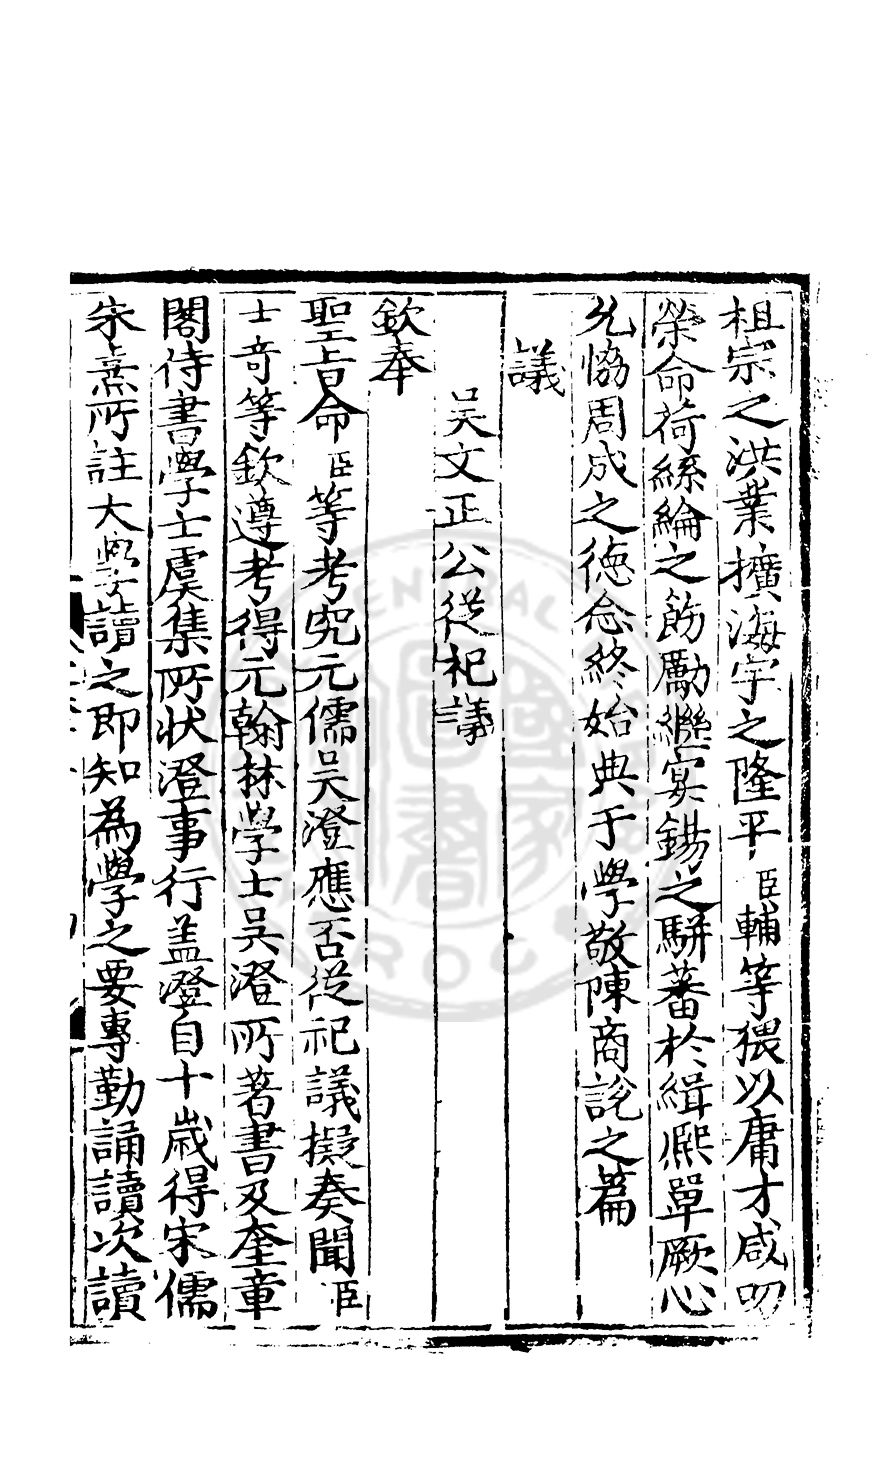 祖宗之洪業擴海宇之隆平臣輔等猥以庸才咸叨
榮命荷絲綸之飭勵繼宴錫之駢蕃於緝熈單厥心
允恊周成之德念終始典于學敬陳商說之篇
議
吳文正公從祀議
欽奉
聖旨命臣等考究元儒吳澄應否從祀議擬奏聞臣
士竒等欽遵考得元翰林學士吳澄所著書及奎章
閣侍書學士虞集所狀澄事行盖澄自十歲得宋儒
朱熹所註大學讀之即知為學之要專勤誦讀次讀